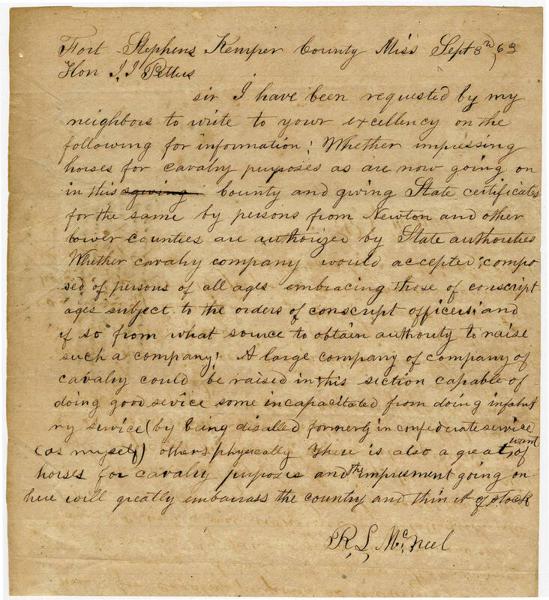 Fort Stephens Kemper County Miss Sept 3rd, 63
Hon J. J. Pettus
sir I have been requested by my
neighbors to write to your excellency on the
following for information: Whether impressing
horses for cavalry purposes as are now going on
in this county and giving State certificates
for the same by persons from Newton and other
lower counties are authorized by State authorities
Whether cavalry company would accepted, compo
sed of persons of all ages embracing those of conscript
ages subject to the orders of conscript officers; and
if so from what source to obtain authority to raise
such a company? A large company of company of
cavalry could be raised in this section capable of
doing good service some incapacitated from doing infant
ry service (by being disabled formerly in confederate service
(as myself) others physically There is also a great want of
horses for cavalry purposes and the impressment going on
here will greatly embarrass the country and thin it of stock
R. L. McNeel